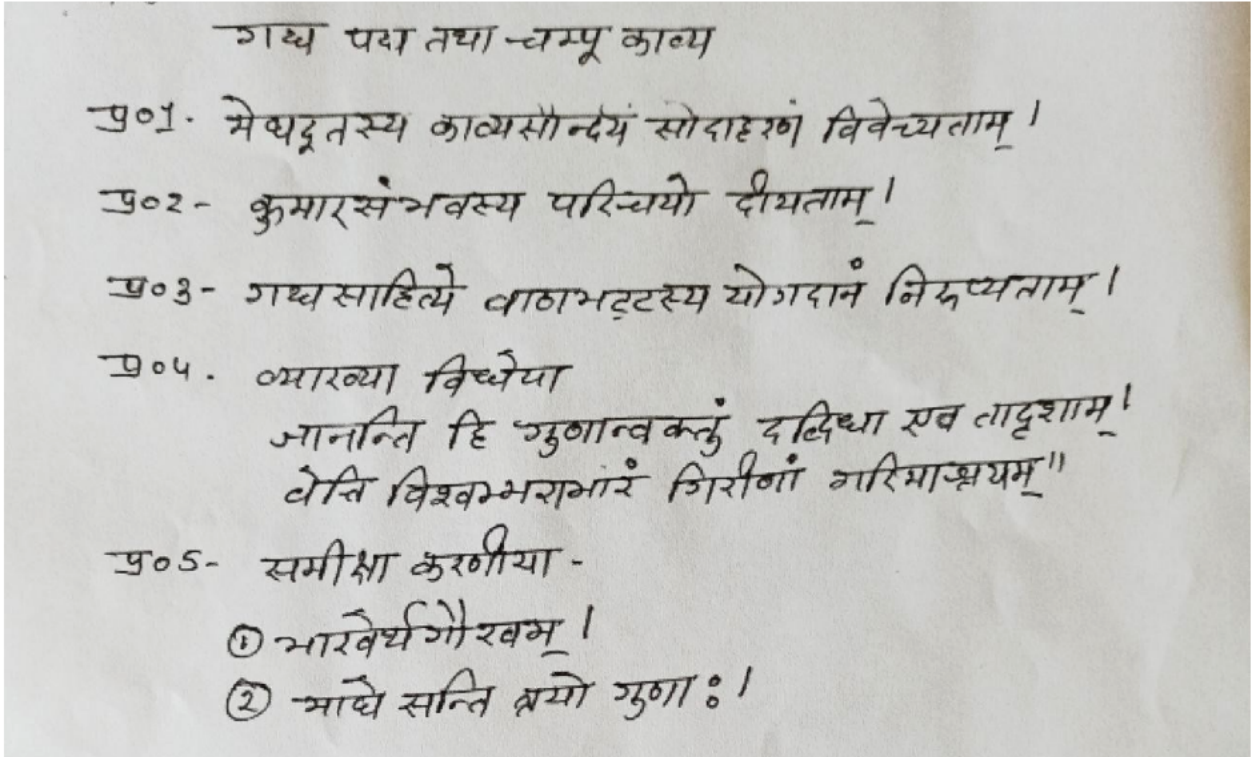 गद्य पद्य तथा चम्पू काव्य
प्र०1. मेघदूतस्य काव्यसौन्दर्यं सोदाहरणं विवेच्यताम्।
प्र०2- कुमारसंभवस्य परिचयो दीयताम्।
प्र०3- गद्यसाहित्ये बाणभट्टस्य योगदानं निरुप्यताम्।
प्र०4. व्याख्या विधेया
जानन्ति हि गुणान्वक्तुं तद्विधा एव तादृशाम्।
वेत्ति विश्वम्भराभारं गिरीणां गरिमाश्रयम्"
प्र०5- समीक्षा करणीया -
① भारवेर्थगौरवम्।
② माघे सन्ति त्रयो गुणाः।